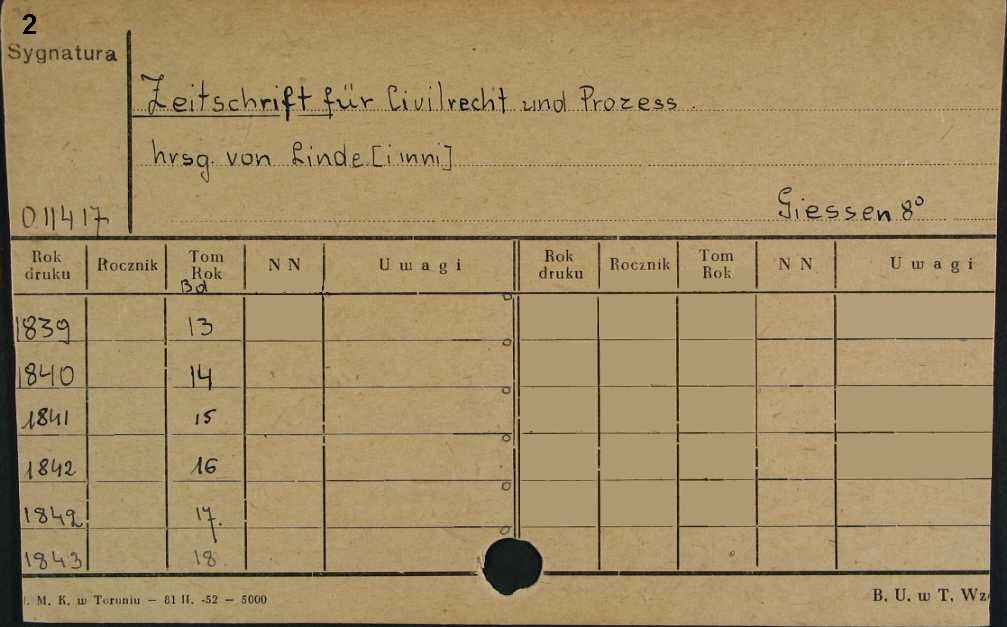 2
Sygnatura
Zeitschrift für Civilrecht und Prozess.
hrsg. von Linde [i inni]
Giessen 8°
011417
Rok druku Rocznik Tom Rok Bd NN Uwagi Rok druku Rocznik Tom Rok NN Uwagi
1839 13
1840 14
1841 15
1842 16
1842 17.
1843 18
. M. K. w Toruniu – 81 II. -52 – 5000
B. U. w T. Wz